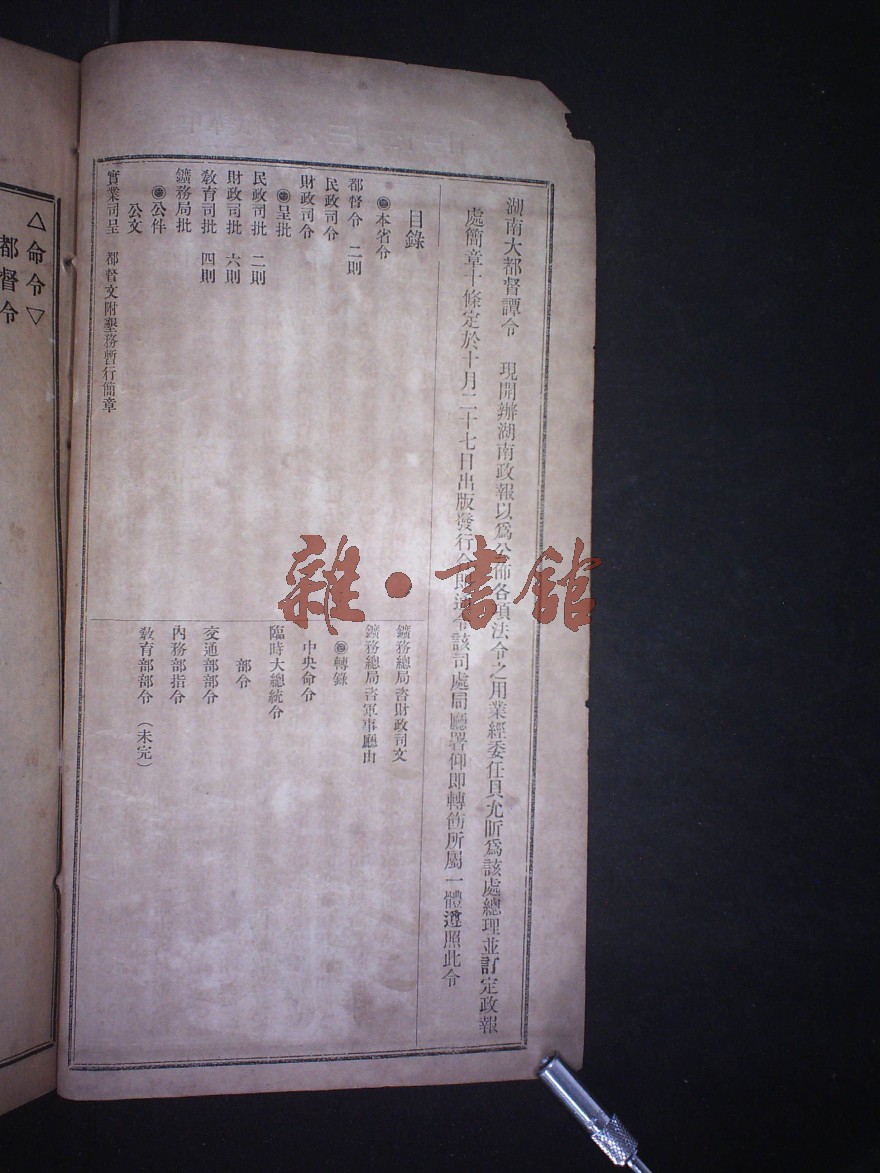 湖南大都督譚令　現開辦湖南政報以爲公佈各項法令之用業經委任貝允昕爲該處總理並訂定政報
處簡章十條定於十月二十七日出版發行合即通令該司處局廳署仰即轉飭所屬一體遵照此令
目錄
本省令
都督令　二則
民政司令
財政司令
呈批
民政司批　二則
財政司批　六則
教育司批　四則
鑛務局批
公件
公文
實業司呈　都督文附墾務暫行簡章
鑛務總局咨財政司文
鑛務總局咨軍事廳由
轉錄
中央命令
臨時大總統令
部令
交通部部令
內務部指令
教育部部令（未完）
△命令▽
都督令
雜·書館